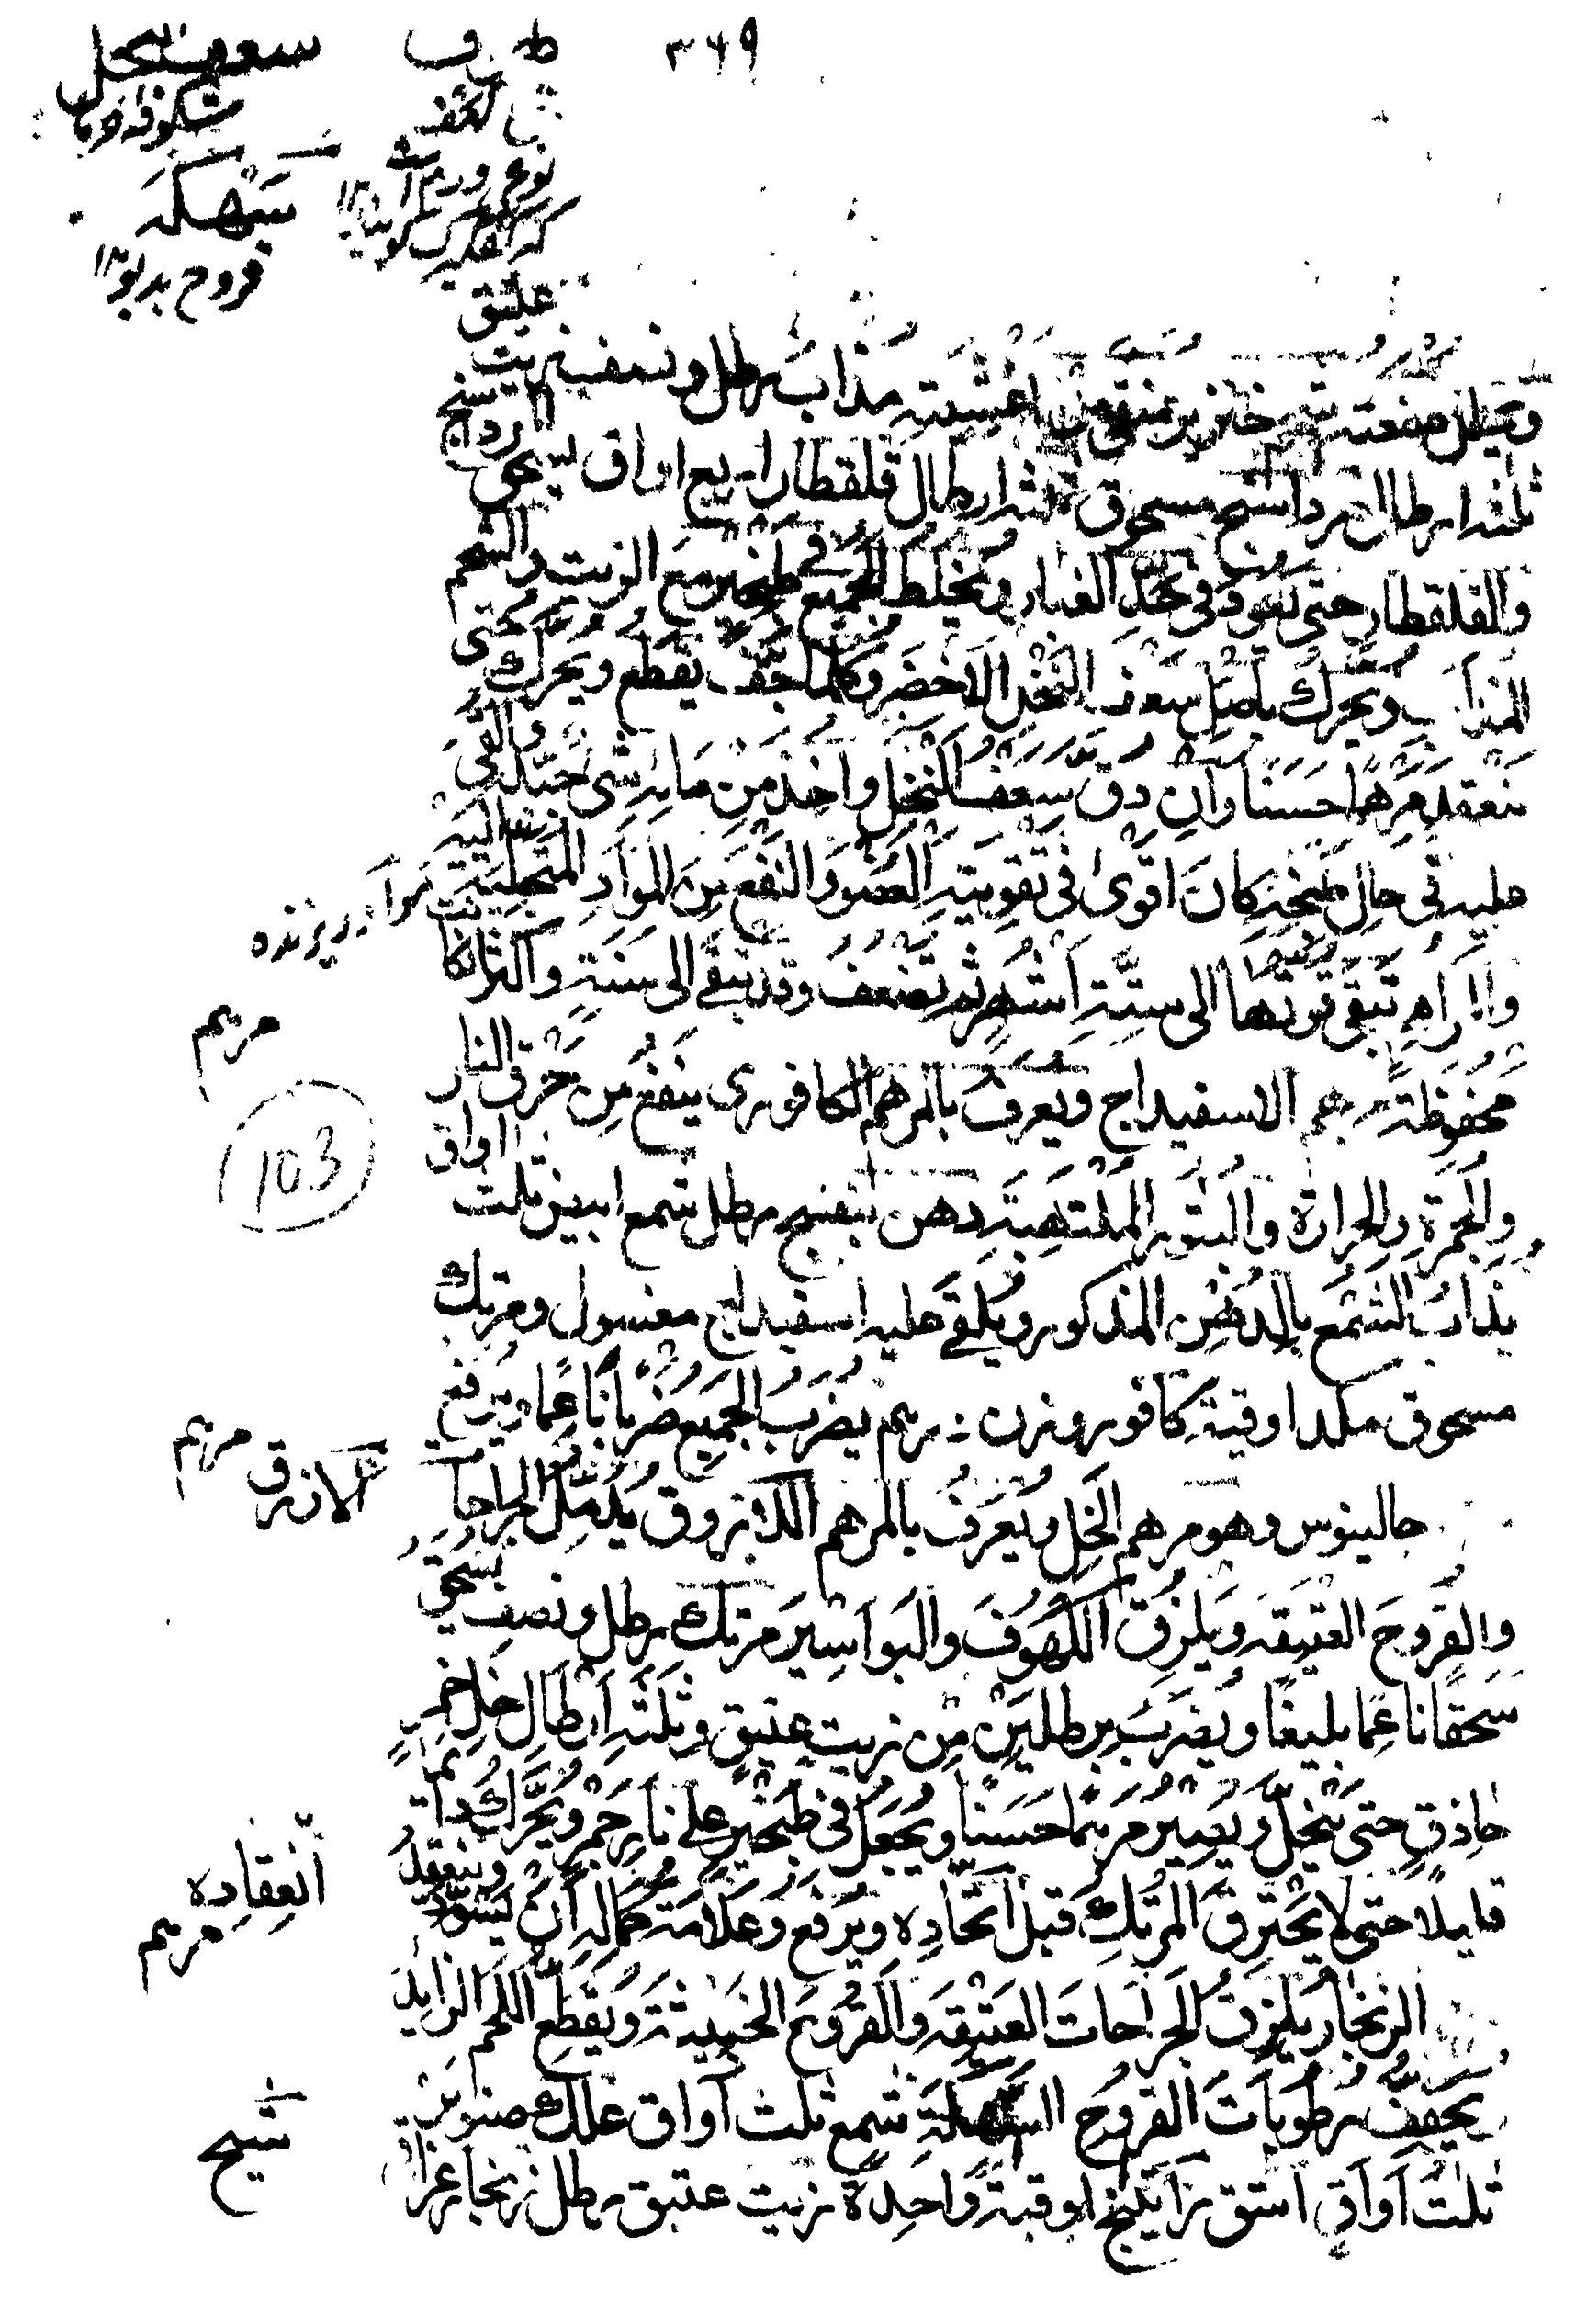 ٣٤٩
سعف نخل
شكوفه خرما
سهكة
قروح بدبو ١٢
نوعی ورم
عتيق
ويبطل منفعته شحم خنزير منقى من اغشيته مذاب رطل ونصف زيت
ثلثة ارطال مرداسنج مسحوق ثلثة ارطال قلقطار اربع اواق يسحق المرداسنج
والقلقطار حتى تعود في حد الغبار ويخلط الجميع في طنجير مع الزيت والشحم
المذاب ويحرك باصل سعف النخل الاخضر وكلما جف يقطع ويحرك حتى
ينعقد مرهما حسنا وان دق سعف النخل واخذ من مائه شئ جيد والقى
عليه في حال طبخه كان اقوى في تقوية العضو والنفع من المواد المتحلبة اليه
مواد ريزنده
والمراهم تبقى قوتها الى ستة اشهر ثم تضعف وقد تبقى الى سنة واكثر ان كانت
محفوظة مرهم الاسفيداج ويعرف بالمرهم الكافورى ينفع من حرق النار
مرهم
103
والحمرة والحرارة والبثور الملتهبة دهن بنفسج رطل شمع ابيض ثلث اواق
يذاب الشمع بالدهن المذكور ويلقى عليه اسفيداج مغسول ومرتك
مسحوق مكد اوقية كافور وزن ٢ درهم يضرب الجميع ضربا ناعما ويرفع
مرهم
جالينوس وهو مرهم الخل ويعرف بالمرهم الازرق يدمل الجراحات
الازرق مرهم
والقروح العتيقة ويلزق الكهوف والبواسير مرتك رطل ونصف يسحق
سحقا ناعما بليغا ويضرب برطلين من زيت عتيق وثلثة ارطال خل خمر
حاذق حتى ينحل ويصير مرهما حسنا ويجعل في طنجير على نار جمر ويحرك دائما
قليلا حتى لا يحترق المرتك قبل اتحاده ويرفع وعلامة كماله ان يسود وينعقد
انعقاده
مرهم
الزنجار يلزق الجراحات العتيقة والقروح الخبيثة ويقطع اللحم الزايد
يجفف رطوبات القروح السهكة شمع ثلث اواق علك صنوبر
ثلث اواق اشق راتينج اوقية واحدة زيت عتيق رطل زنجار